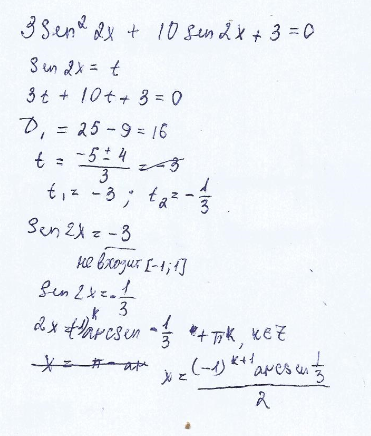 3 sen² 2x + 10 sen 2x + 3 = 0
sen 2x = t
3t + 10t + 3 = 0
D₁ = 25 - 9 = 16
t = (-5 ± 4)/3 = -3
t₁ = -3 ; t₂ = -1/3
sen 2x = -3
не входит [-1;1]
sen 2x = -1/3
2x = (-1)^k arcsen -1/3 + πk, k∈Z
x = π - ar
x = ((-1)^(k+1) arcsen 1/3)/2